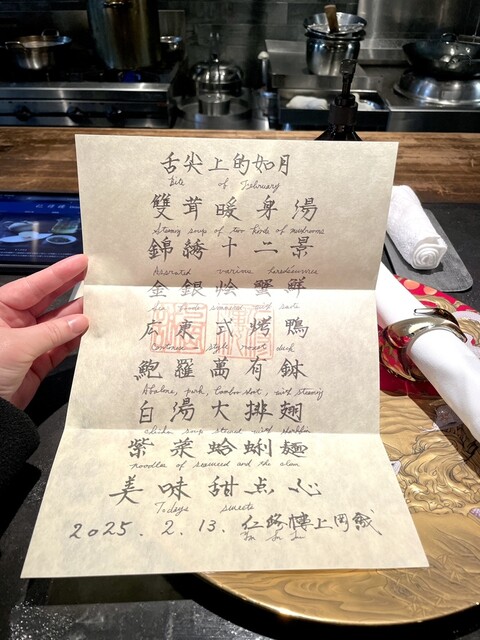 舌尖上的如月
Bite of February
雙茸暖身湯
Steamy soup of two kinds of mushrooms
錦綉十二景
Assorted various
金銀燴蟹鮮
広東式烤鴨
Cantonese style roast duck
鮑羅萬有鉢
Abalone, pork, bamboo shoot, with steaming
白湯大排翅
chicken soup with sharkfin
紫菜蛤蜊麺
noodles of seaweed and the clam
美味甜点心
Todays sweets
2025.2.13.